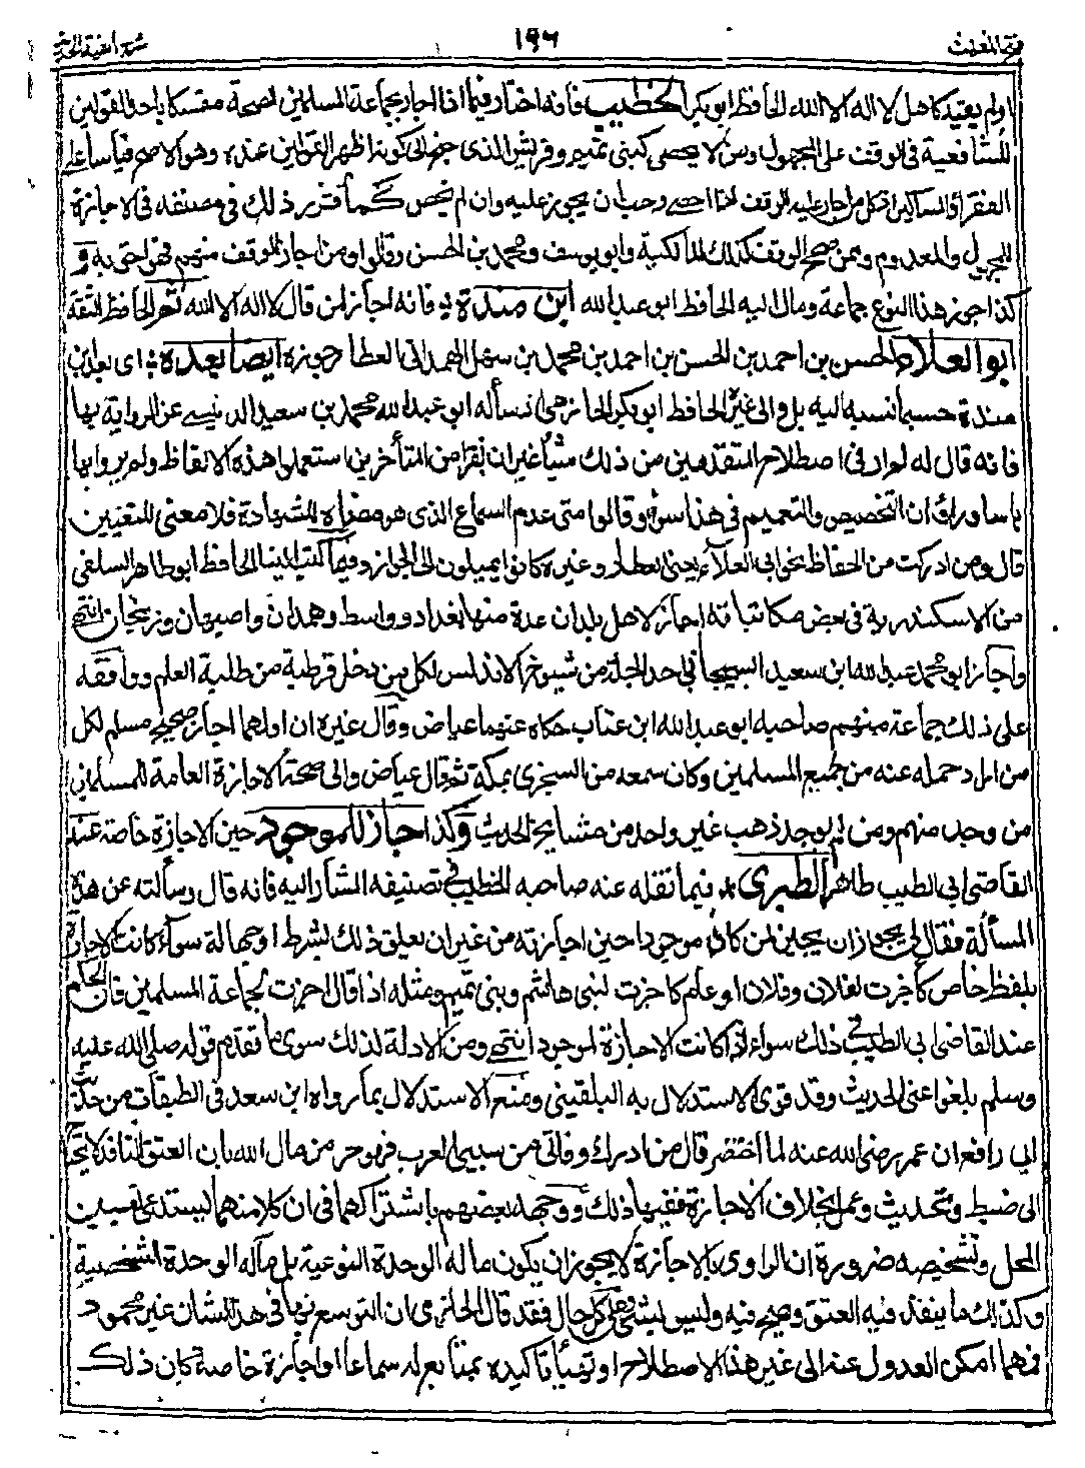 فتح المغيث ١٩٦ شرح الفية الحديث
اولم يقيد كاهل لا اله الا الله الحافظ ابوبكر الخطيب فانه اختار فيما اذا اجاز لجماعة المسلمين الصحة متمسكا باحد القولين
للشافعية فى الوقف على المجهول ومن لا يحصى كبنى تميم وقريش الذى جنح الى كونه اظهر القولين عنده وهو الاصح قياسا على
الفقراء والمساكين اذ كل من جاز عليه الوقف اذا احصى وجب ان يجوز عليه وان لم يحص كما قرر ذلك فى مصنفه فى الاجازة
للمجهول والمعدوم وممن صحح الوقف كذلك المالكية وابويوسف ومحمد بن الحسن وقالوا ومن اجاز الموقف منهم فهو احق به و
كذا جوز هذا النوع جماعة ومال اليه الحافظ ابوعبدالله ابن مندة فانه اجاز لمن قال لا اله الا الله ثم الحافظ الثقة
ابوالعلاء الحسن بن احمد بن الحسن بن احمد بن محمد بن سهل الهمدانى العطار جوزه ايضا بعده اى بعد ابن
مندة حسبما نسبه اليه بل والى غيره الحافظ ابوبكر الحازمى اذ سأله ابوعبدالله محمد بن سعيد الدبيثى عن الرواية بها
فانه قال له لم ار فى اصطلاح المتقدمين من ذلك شيأ غير ان نفرا من المتأخرين استعملوا هذه الالفاظ ولم يروا بها
باسا وراوا ان التخصيص والتعميم فى هذا سواء وقالوا متى عدم السماع الذى هو مضاه للشهادة فلا معنى للتعيين
قال ومن ادركت من الحفاظ نحو ابى العلاء يعنى العطار وغيره كانوا يميلون الى الجواز وفيما كتب الينا الحافظ ابوطاهر السلفى
من الاسكندرية فى بعض مكاتباته اجاز لاهل بلدان عدة منها بغداد وواسط وهمدان واصبهان وزنجان انتهى
واجاز ابومحمد عبدالله ابن سعيد احد الجلة من شيوخ الاندلس لكل من دخل قرطبة من طلبة العلم ووافقه
على ذلك جماعة منهم صاحبه ابوعبدالله ابن عتاب حكاه عنهما عياض وقال غيره ان اولهما اجاز صحيح مسلم لكل
من اراد حمله عنه من جميع المسلمين وكان سمعه من السجزى بمكة ثم قال عياض والى صحة الاجازة العامة للمسلمين
من وجد منهم ومن لم يوجد ذهب غير واحد من مشايخ الحديث وكذا جاز للموجود حين الاجازة خاصة عند
القاضى ابى الطيب طاهر الطبرى فيما نقله عنه صاحبه الخطيب فى تصنيفه المشار اليه فانه قال وسألته عن هذه
المسألة فقال لى يجوز ان يجيز لمن كان موجودا حين اجازته من غير ان يعلق ذلك بشرط او جهالة سواء كانت الاجازة
بلفظ خاص كاجزت لفلان وفلان او عام كاجزت لبنى هاشم وبنى تميم ومثله اذا قال اجزت لجماعة المسلمين فان الحكم
عند القاضى ابى الطيب فى ذلك سواء اذا كانت الاجازة لموجود انتهى ومن الادلة لذلك سوى ما تقدم قوله صلى الله عليه
وسلم بلغوا عنى الحديث وقد قوى الاستدلال به البلقينى ومنع الاستدلال بما رواه ابن سعد فى الطبقات من حديث
ابى رافع ان عمر رضى الله عنه لما احتضر قال من ادرك وفاتى من سبى العرب فهو حر من مال الله بان العتق النافذ لا يحتاج
الى ضبط وتحديث وعمل بخلاف الاجازة ففيها ذلك ووجهه بعضهم باشتراكهما فى ان كلا منهما يستدعى تعيين
المحل وتشخيصه ضرورة ان الراوى بالاجازة لا يجوز ان يكون ماله الوحدة النوعية بل ماله الوحدة الشخصية
وكذلك ما ينفذ فيه العتق ويصح فيه وليس بشئ وعلى كل حال فقد قال الحازمى ان التوسع بها فى هذا الشان غير محمود
فمهما امكن العدول عنه الى غير هذا الاصطلاح او تهيأ تاكيده بمتابع له سماعا او اجازة خاصة كان ذلك